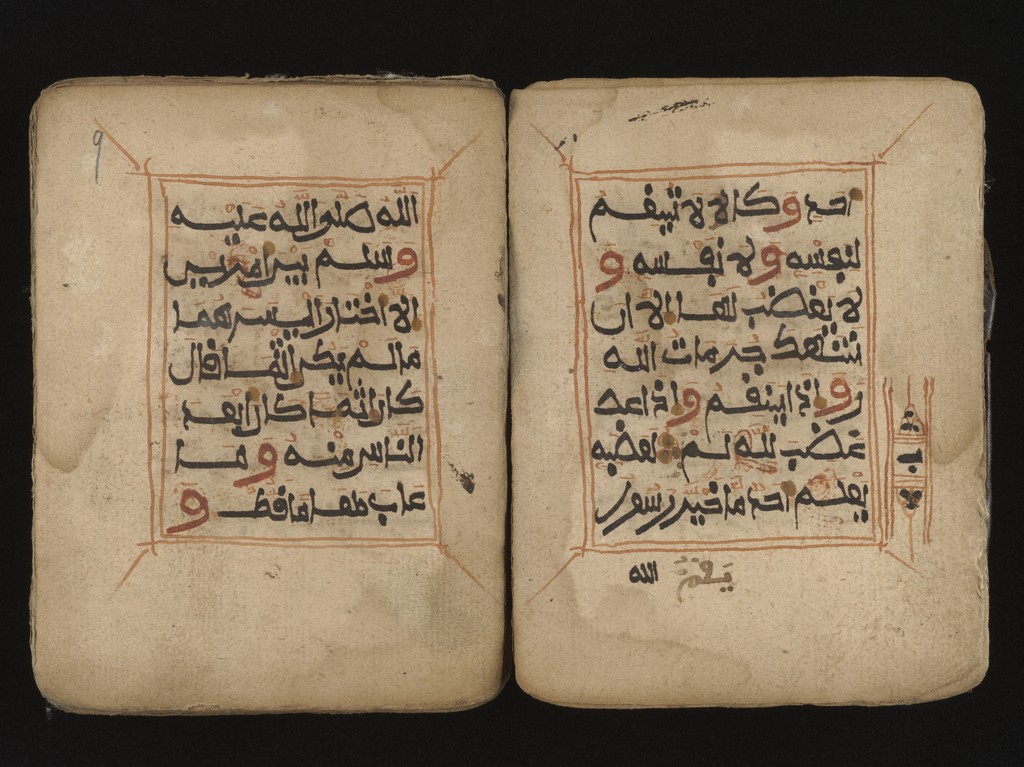 احد و كان لا ينتقم
لنفسه و لا نفسه و
لا يغضب لها الا ان
تنتهك حرمات الله
و اذا ينتقم و اذا
غضب لله لم لغضبه
يقم احد ما خير رسول
يقم الله
الله صلى الله عليه
وسلم بين امرين
الا اختار ايسرهما
ما لم يكن اثما فان
كان اثما كان ابعد
الناس منه و ما
عاب طعاما قط و
9